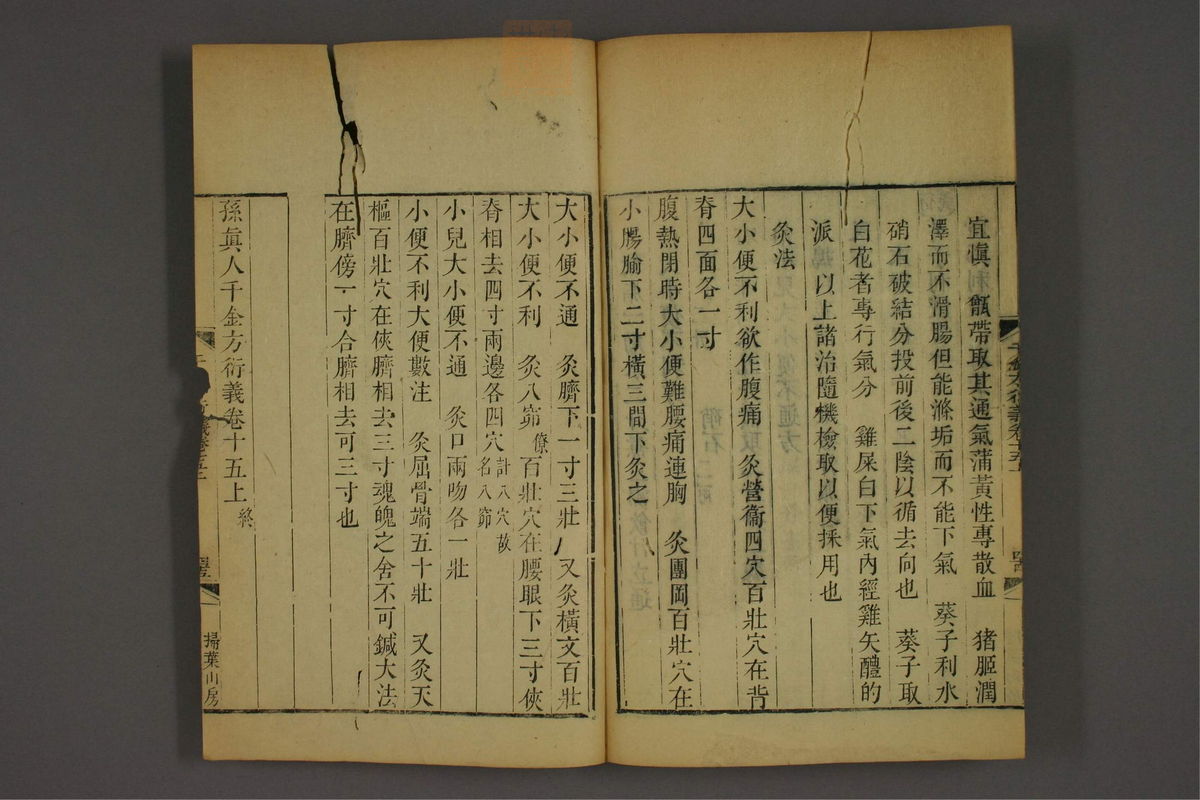 宜慎利　甑帶取其通氣蒲黃性專散血　猪脏潤
澤而不滑腸但能滌垢而不能下氣　葵子利水
硝石破結分投前後二陰以循去向也　葵子取
白花者專行氣分　雞屎白下氣內經雞矢醴的
派　以上諸治隨機檢取以便採用也
灸法
大小便不利欲作腹痛　灸營衞四穴百壯穴在背
脊四面各一寸
腹熱閉時大小便難腰痛連胸　灸團岡百壯穴在
小腸腧下二寸橫三間下灸之
大小便不通　灸臍下一寸三壯　又灸橫文百壯
大小便不利　灸八窌僚百壯穴在腰眼下三寸俠
脊相去四寸兩邊各四穴計八穴故名八窌
小兒大小便不通　灸口兩吻各一壯
小便不利大便數注　灸屈骨端五十壯　又灸天
樞百壯穴在俠臍相去三寸魂魄之舍不可鍼大法
在臍傍一寸合臍相去可三寸也
孫眞人千金方衍義卷十五上終
掃葉山房